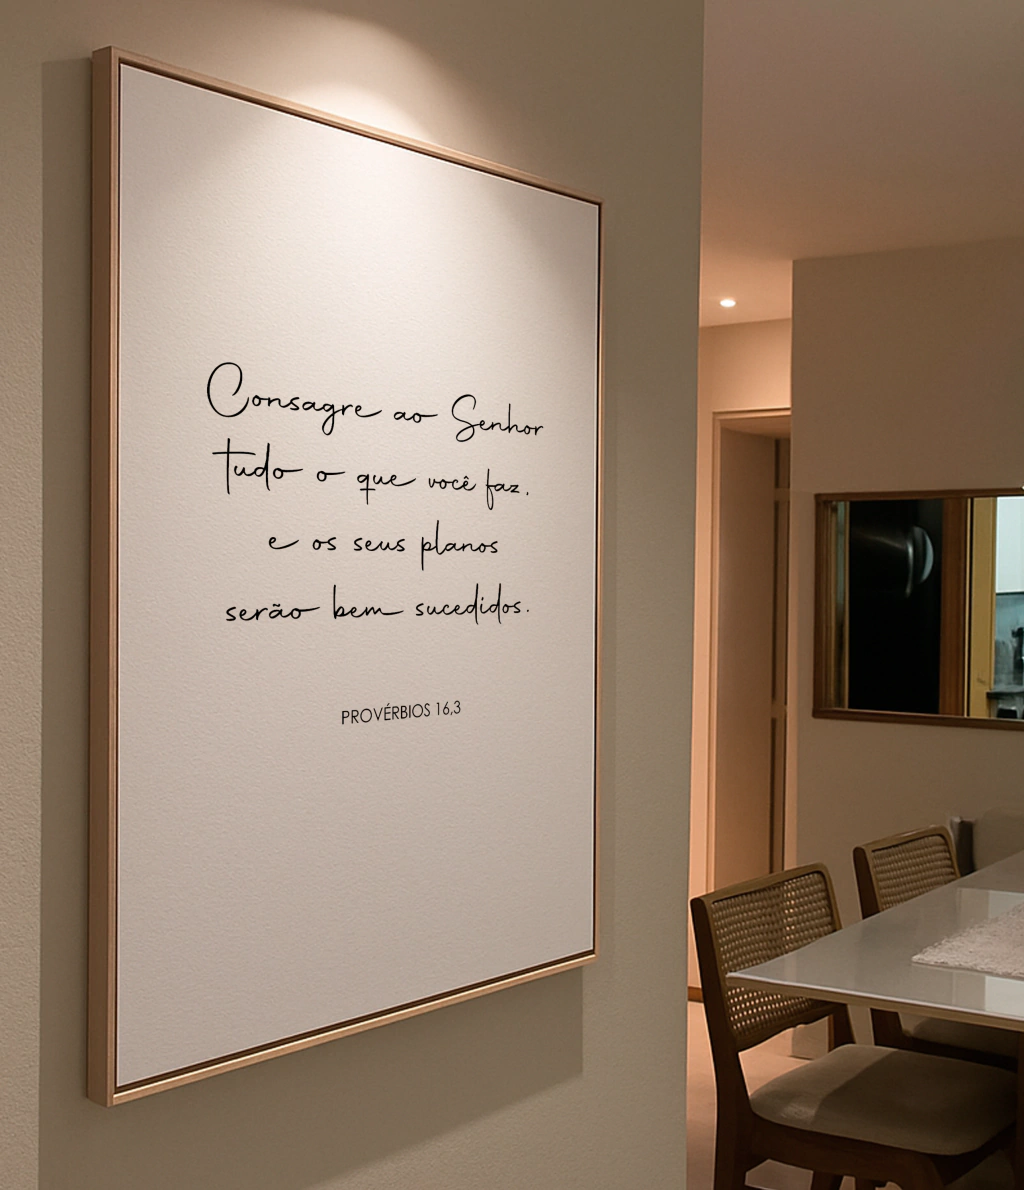 Consagre ao Senhor
tudo o que você faz,
e os seus planos
serão bem sucedidos.
PROVÉRBIOS 16,3